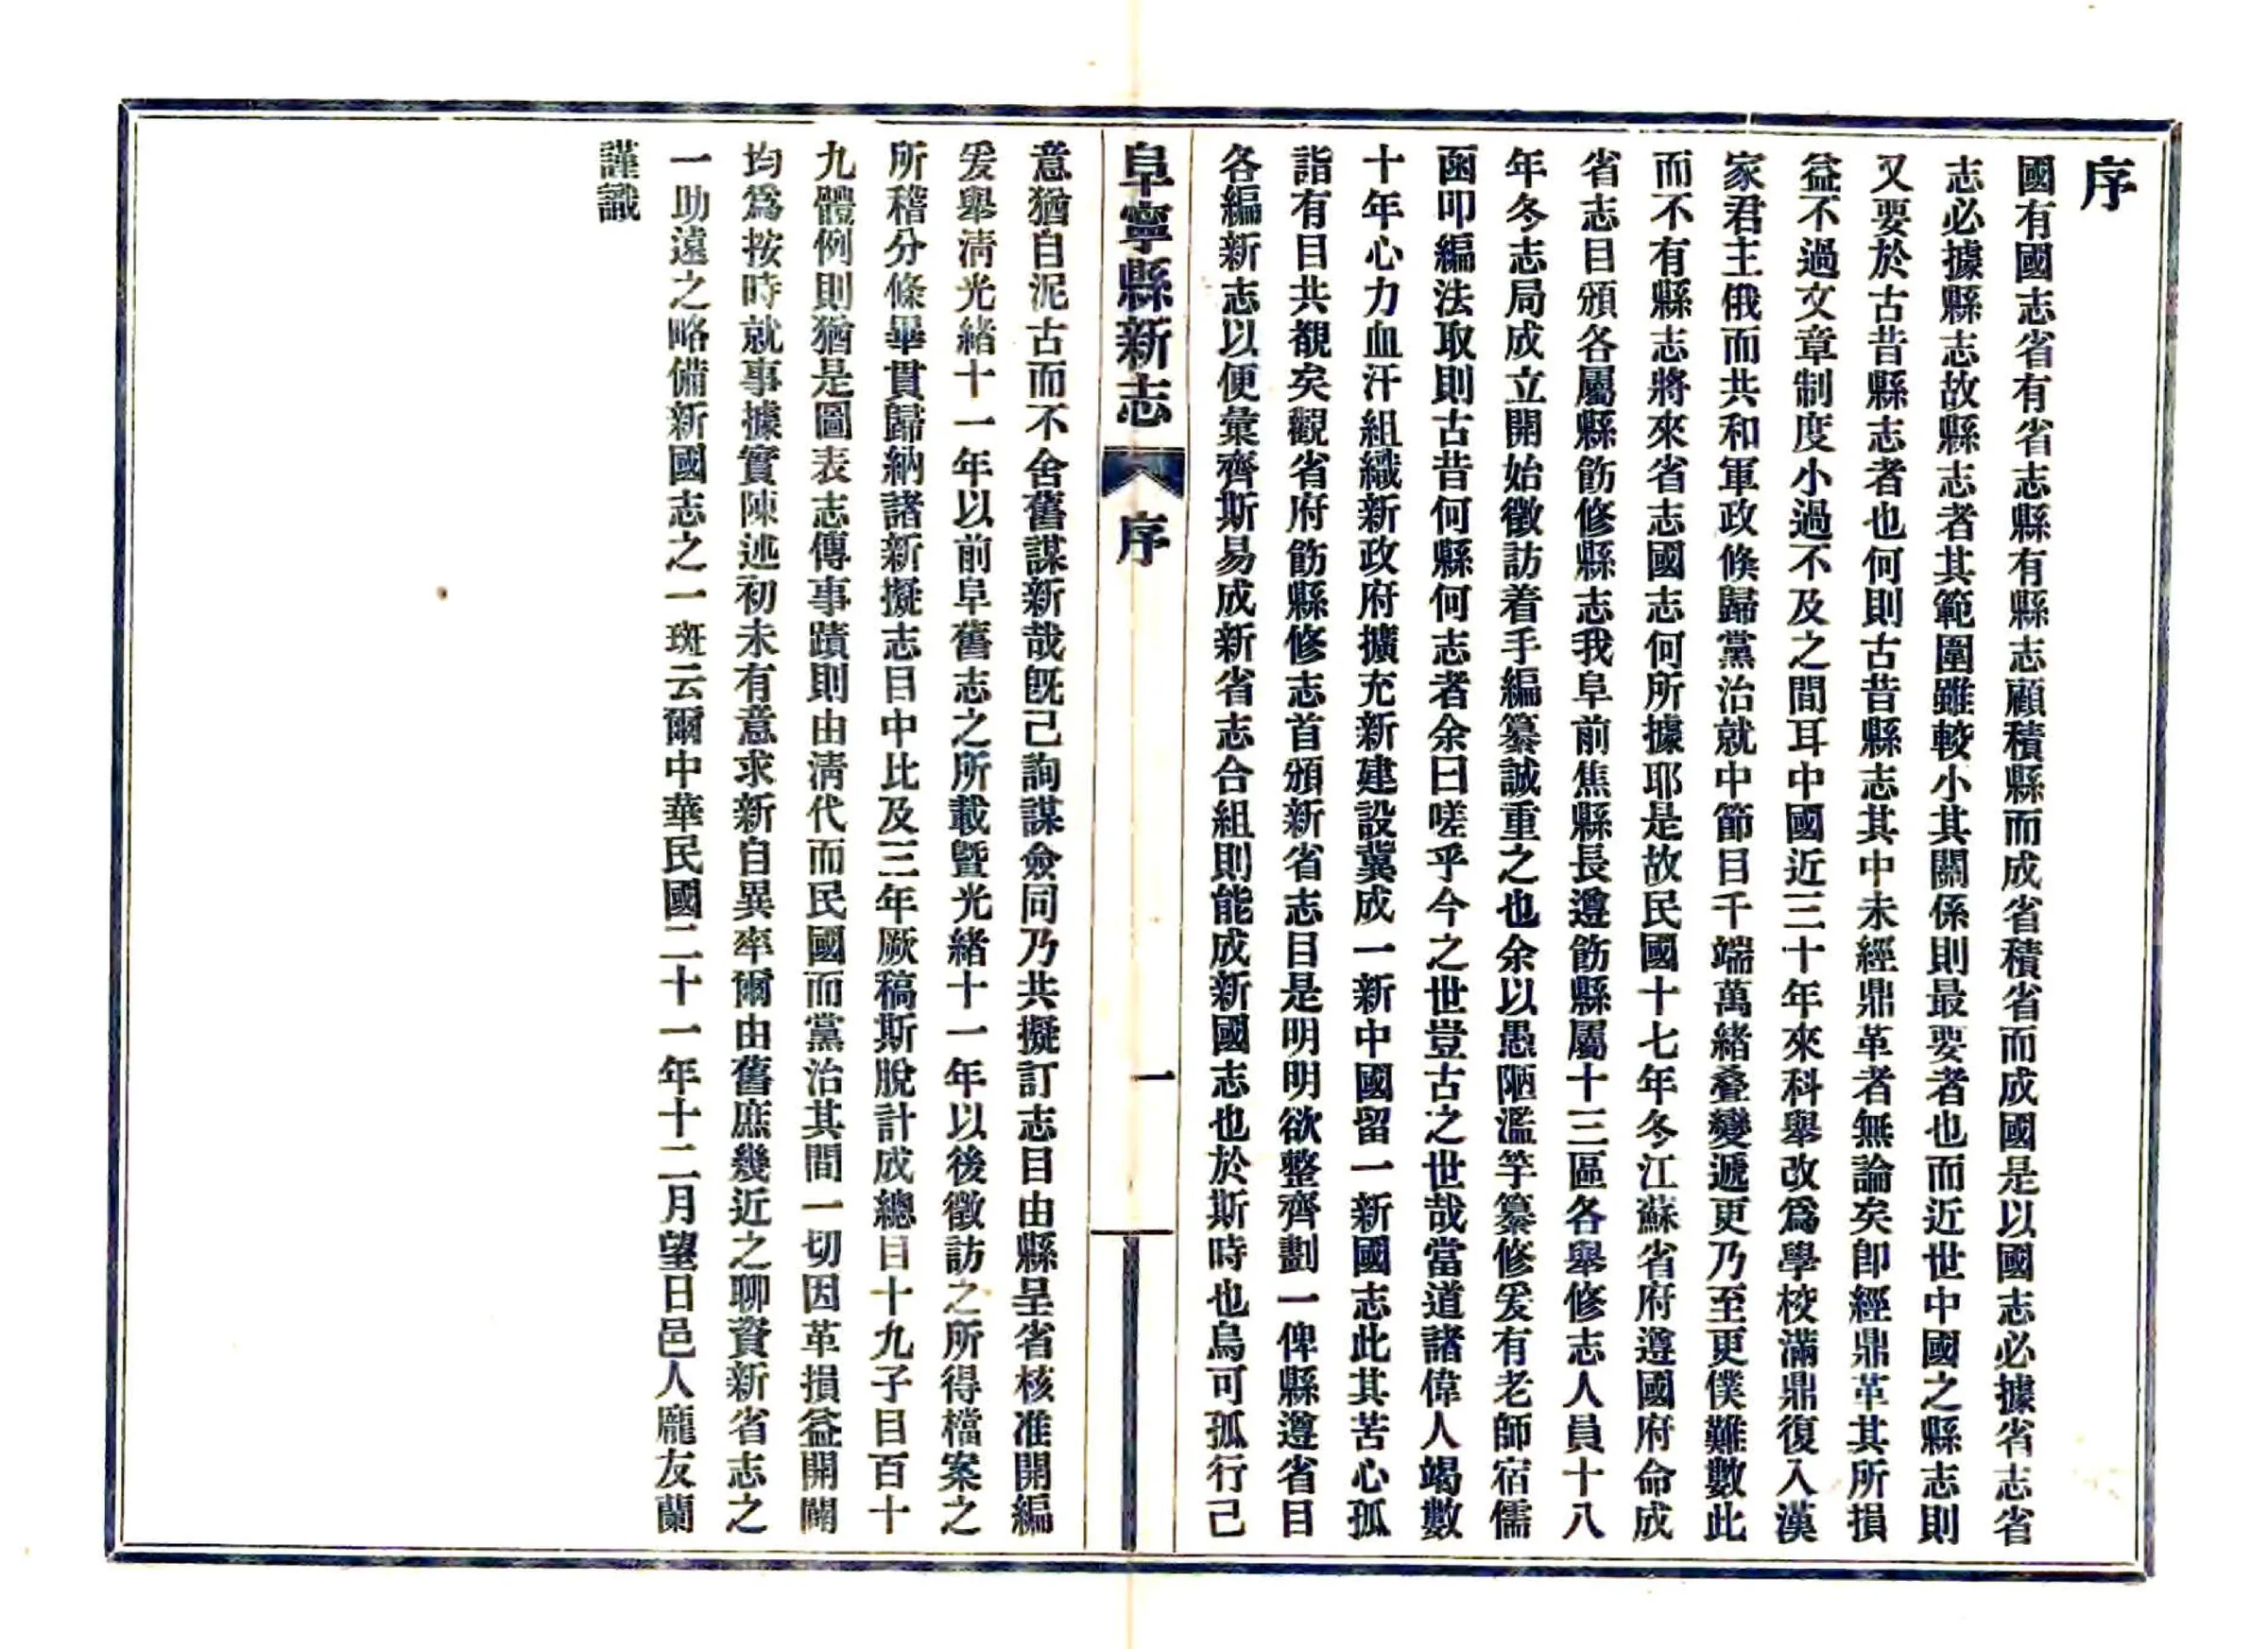 序
國有國志省有省志縣有縣志顧積縣而成省積省而成國是以國志必據省志省
志必據縣志故縣志者其範圍雖較小其關係則最要者也而近世中國之縣志則
又要於古昔縣志者也何則古昔縣志其中未經鼎革者無論矣卽經鼎革其所損
益不過文章制度小過不及之間耳中國近三十年來科舉改爲學校滿鼎復入漢
家君主俄而共和軍政倏歸黨治就中節目千端萬緒叠變遞更乃至更僕難數此
而不有縣志將來省志國志何所據耶是故民國十七年冬江蘇省府遵國府命成
省志目頒各屬縣飭修縣志我阜前焦縣長遵飭縣屬十三區各舉修志人員十八
年冬志局成立開始徵訪着手編纂誠重之也余以愚陋濫竽纂修爰有老師宿儒
函叩編法取則古昔何縣何志者余曰嗟乎今之世豈古之世哉當道諸偉人竭數
十年心力血汗組織新政府擴充新建設冀成一新中國留一新國志此其苦心孤
詣有目共覩矣觀省府飭縣修志首頒新省志目是明明欲整齊劃一俾縣遵省目
各編新志以便彙齊斯易成新省志合組則能成新國志也於斯時也烏可孤行己
阜寧縣新志
序
一
意猶自泥古而不舍舊謀新哉旣己詢謀僉同乃共擬訂志目由縣呈省核准開編
爰舉淸光緒十一年以前阜舊志之所載曁光緒十一年以後徵訪之所得檔案之
所稽分條畢貫歸納諸新擬志目中比及三年厥稿斯脫計成總目十九子目百十
九體例則猶是圖表志傳事蹟則由淸代而民國而黨治其間一切因革損益開闢
均爲按時就事據實陳述初未有意求新自異率爾由舊庶幾近之聊資新省志之
一助遠之略備新國志之一斑云爾中華民國二十一年十二月望日邑人龐友蘭
謹識